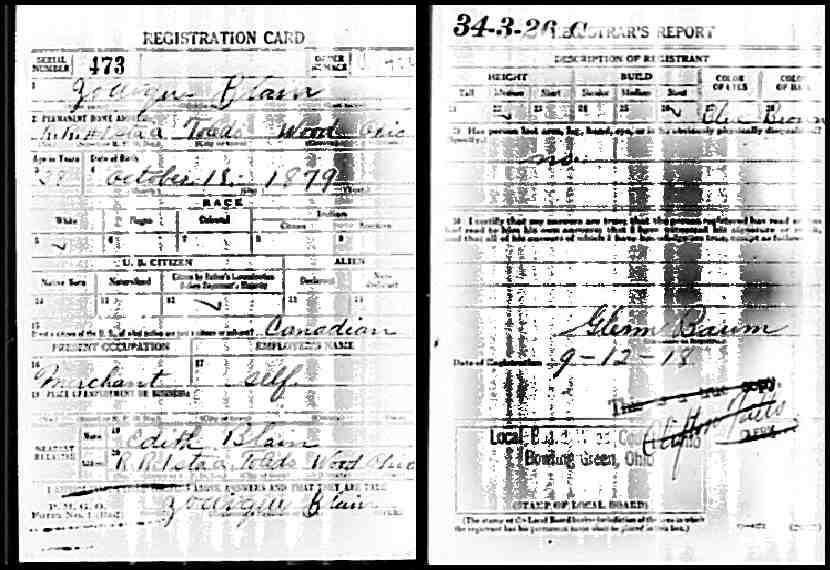 REGISTRATION CARD
SERIAL NUMBER 473 ORDER NUMBER
1 Blain
2 PERMANENT HOME ADDRESS
R.R. #1 Sta A Toledo Wood Ohio
Age in Years Date of Birth
3 4 October 18. 1879
RACE
White Negro Oriental Indian
Citizen
5 ✓ 6 7 8 9
U. S. CITIZEN ALIEN
Native Born Naturalized Citizen by Father's Naturalization Before Registrant's Majority Declarant Non-declarant
12 ✓
15 If not a citizen of the U. S., of what nation are you a citizen or subject? Canadian
PRESENT OCCUPATION EMPLOYER'S NAME
16 17
Merchant self.
18 PLACE OF EMPLOYMENT OR BUSINESS
NEAREST RELATIVE
Name 19 Edith Blain
20 R.R. 1 Sta A Toledo Wood Ohio
I AFFIRM THAT I HAVE VERIFIED ABOVE ANSWERS AND THAT THEY ARE TRUE
P. M. G. O.
Form No. 1 (Red) Blain
34-3-26 C
REGISTRAR'S REPORT
DESCRIPTION OF REGISTRANT
HEIGHT BUILD COLOR OF EYES COLOR OF HAIR
Tall Medium Short Slender Medium Stout
21 22 ✓ 23 24 25 26 ✓ 27 Blue 28 Brown
29 Has person lost arm, leg, hand, eye, or is he obviously physically disqualified?
no.
30 I certify that my answers are true; that the person registered has read or has
had read to him his own answers; that I have witnessed his signature or mark,
and that all of his answers of which I have knowledge are true, except as follows:
Glenn Baum
Date of Registration 9-12-18
This is a true copy.
Clifton
CLERK
Local Board Wood County Ohio
Bowling Green, Ohio
(STAMP OF LOCAL BOARD)
(The stamp of the Local Board having jurisdiction of the area in which
the registrant has his permanent home shall be placed in this box.)